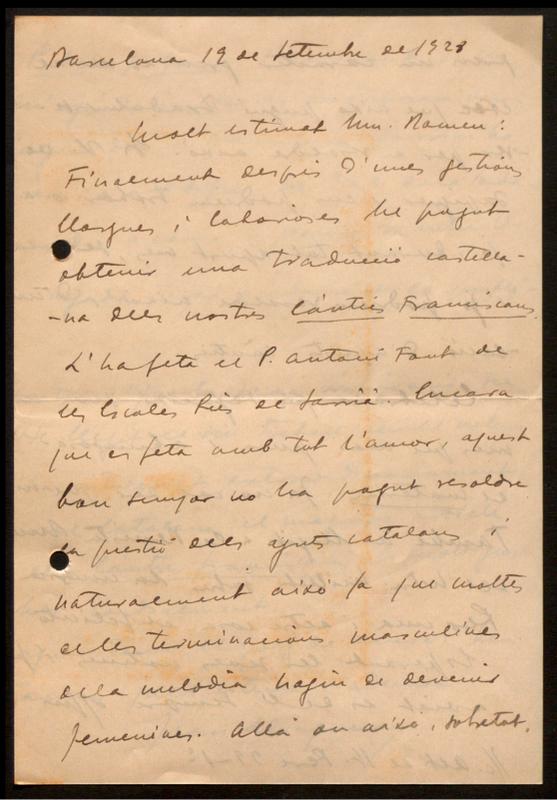 Barcelona 19 de Setembre de 1928
Molt estimat Mn. Romeu:
Finalment després d'unes gestions
llargues i laborioses he pogut
obtenir una traducció castella-
-na dels nostres Càntics Franciscans.
L'ha feta el P. Antoni Font de
les Escoles Pies de Sarrià. Encara
que es feta amb tot l'amor, aquest
bon senyor no ha pogut resoldre
la questió dels aguts catalans i
naturalment aixó fa que moltes
de les terminacions masculines
de la melodia hagin de devenir
femenines. Allà on aixó, sobretot,